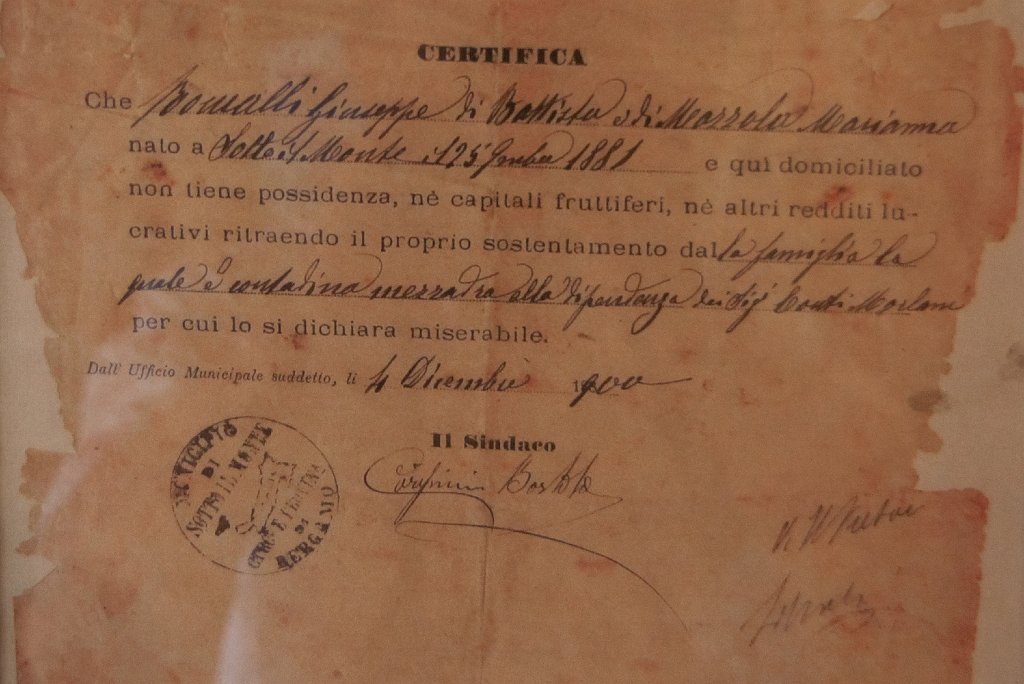 CERTIFICA
Che Roncalli Giuseppe di Battista e di Mazzola Marianna
nato a Sotto il Monte il 25 9mbre 1881 e quì domiciliato
non tiene possidenza, nè capitali fruttiferi, nè altri redditi lu-
crativi ritraendo il proprio sostentamento dalla famiglia la
quale è contadina mezzadra alla dipendenza dei Sigi Conti Morlani
per cui lo si dichiara miserabile.
Dall' Ufficio Municipale suddetto, li 4 Dicembre 1900
Il Sindaco
MUNICIPIO
DI
SOTTO IL MONTE
CIRC. E PROVINCIA
DI
BERGAMO